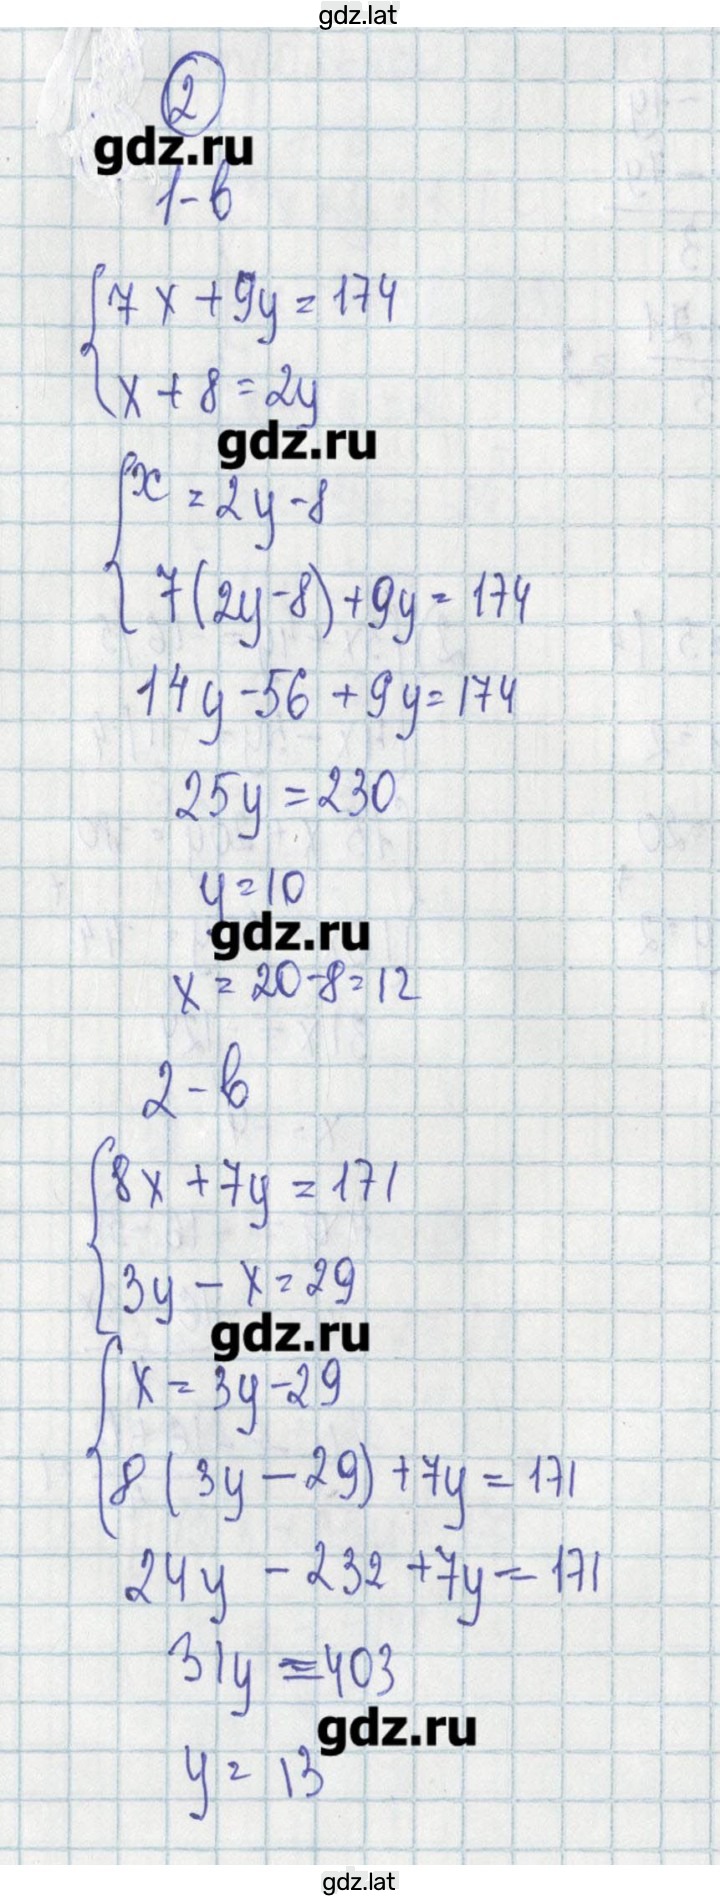 gdz.lat
2
gdz.ru
1-в
7x+9y=174
x+8=2y
gdz.ru
x=2y-8
7(2y-8)+9y=174
14y-56+9y=174
25y=230
y=10
gdz.ru
x=20-8=12
2-в
8x+7y=171
3y-x=29
gdz.ru
x=3y-29
8(3y-29)+7y=171
24y-232+7y=171
31y=403
gdz.ru
y=13
gdz.lat